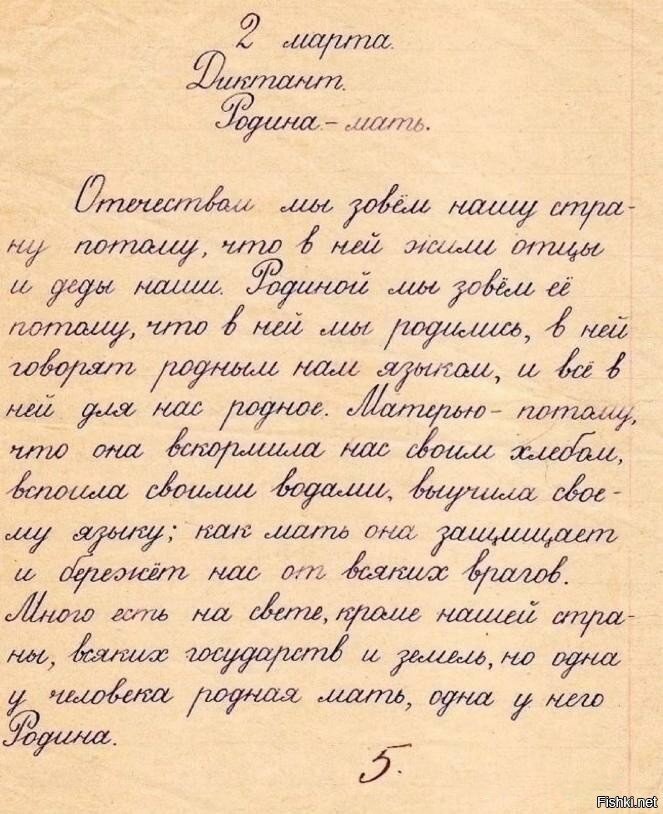 2 марта.
Диктант.
Родина - мать.
Отечеством мы зовём нашу стра-
ну потому, что в ней жили отцы
и деды наши. Родиной мы зовём её
потому, что в ней мы родились, в ней
говорят родным нам языком, и всё в
ней для нас родное. Матерью - потому,
что она вскормила нас своим хлебом,
вспоила своими водами, выучила свое-
му языку; как мать она защищает
и бережёт нас от всяких врагов.
Много есть на свете, кроме нашей стра-
ны, всяких государств и земель, но одна
у человека родная мать, одна у него
Родина.
5.
Fishki.net